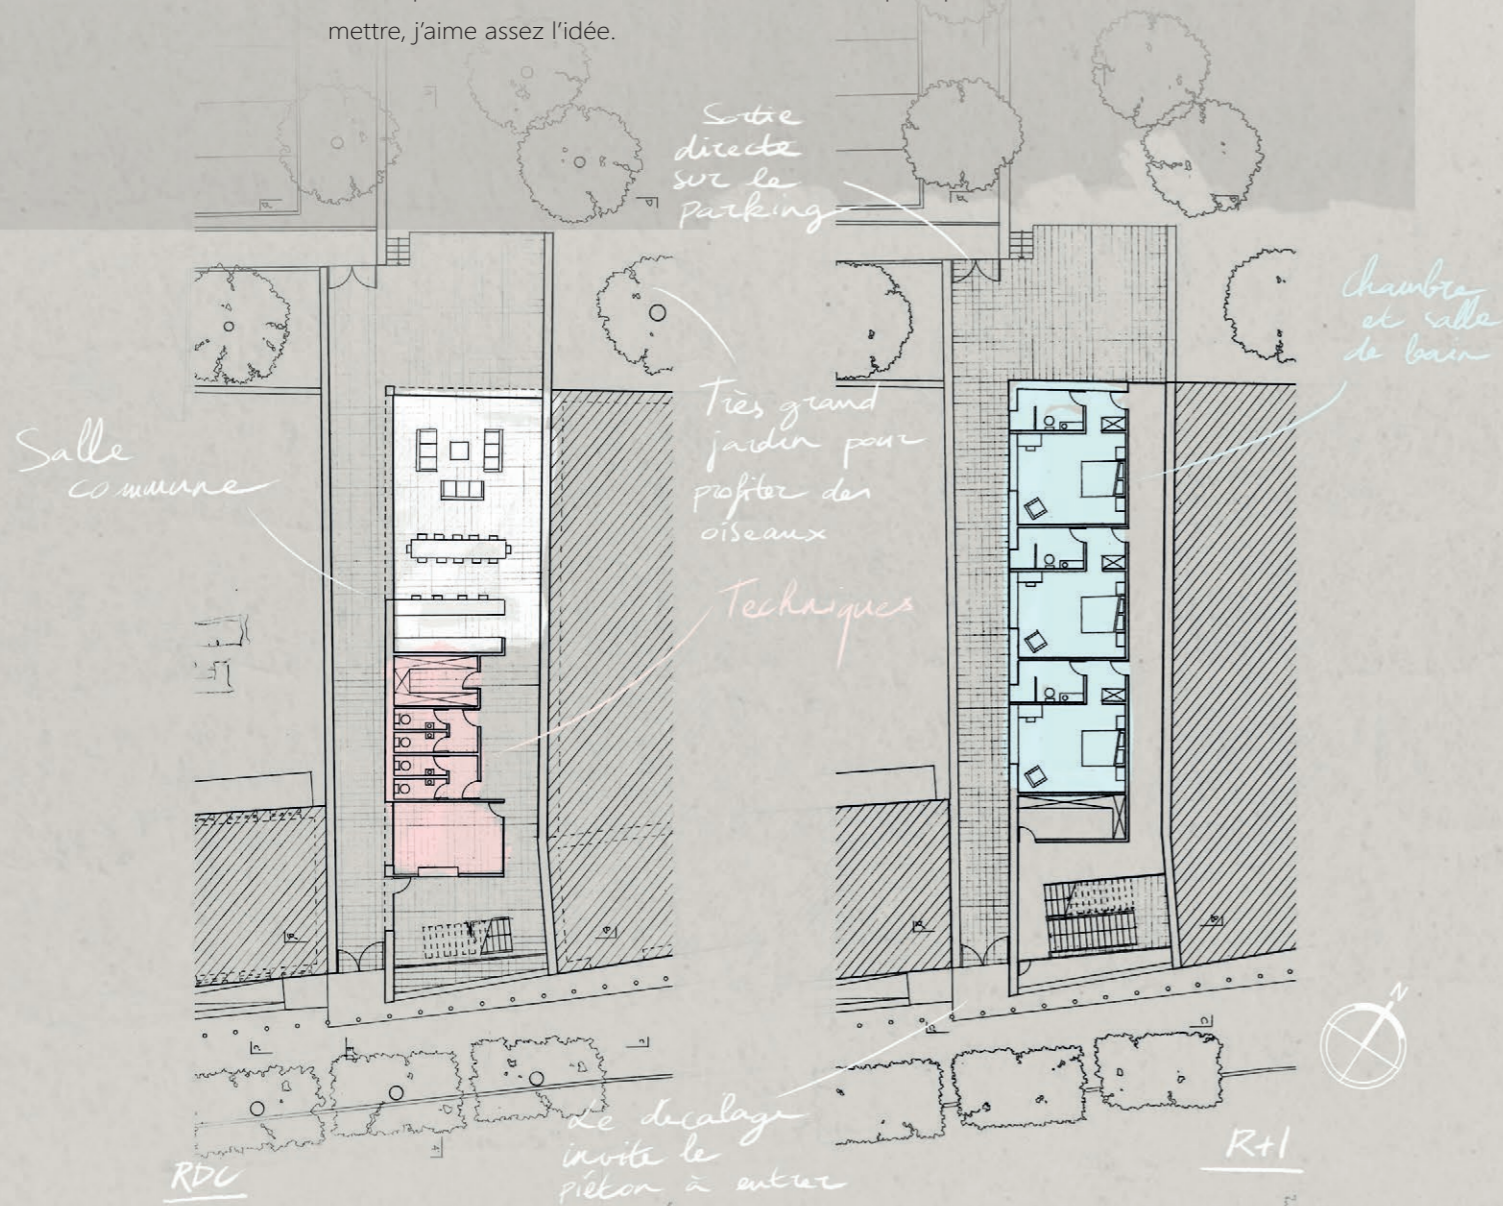 mettre, j'aime assez l'idée.
Sortie
directe
sur le
parking
chambre
et salle
de bain
Très grand
jardin pour
profiter des
oiseaux
Salle
commune
Techniques
N
Le decalage
invite le
piéton à entrer
RDC
R+1